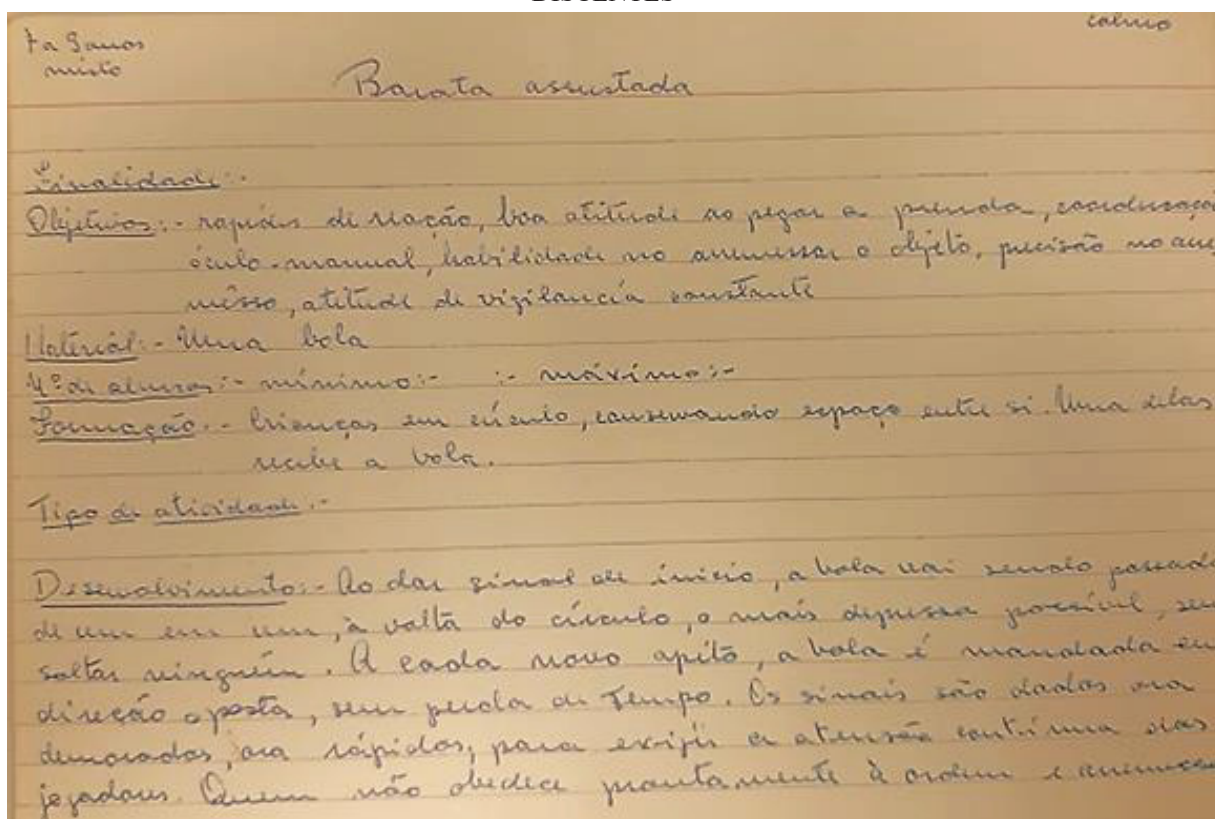 DISCENTES
7 a 9 anos
misto
calmo
Barata assustada
Finalidade:-
Objetivos:- rapidês de reação, boa atitude ao pegar a prenda, coordenaçã
óculo-manual, habilidade no arremessar o objeto, precisão no arre
mêsso, atitude de vigilancia constante
Material:- Uma bola
Nº de alunos:- mínimo:- :- máximo:-
Formação:- Crianças em círculo, conservando espaço entre si. Uma delas
recebe a bola.
Tipo de atividade:-
Desenvolvimento:- Ao dar sinal de início, a bola vai sendo passada
de um em um, à volta do círculo, o mais depressa possível, sem
saltar ninguém. A cada novo apito, a bola é mandada em
direção oposta, sem perda de tempo. Os sinais são dados ora
demorados, ora rápidos, para exigir a atensão contínua dos
jogadores. Quem não obedece prontamente à ordem e arremessa